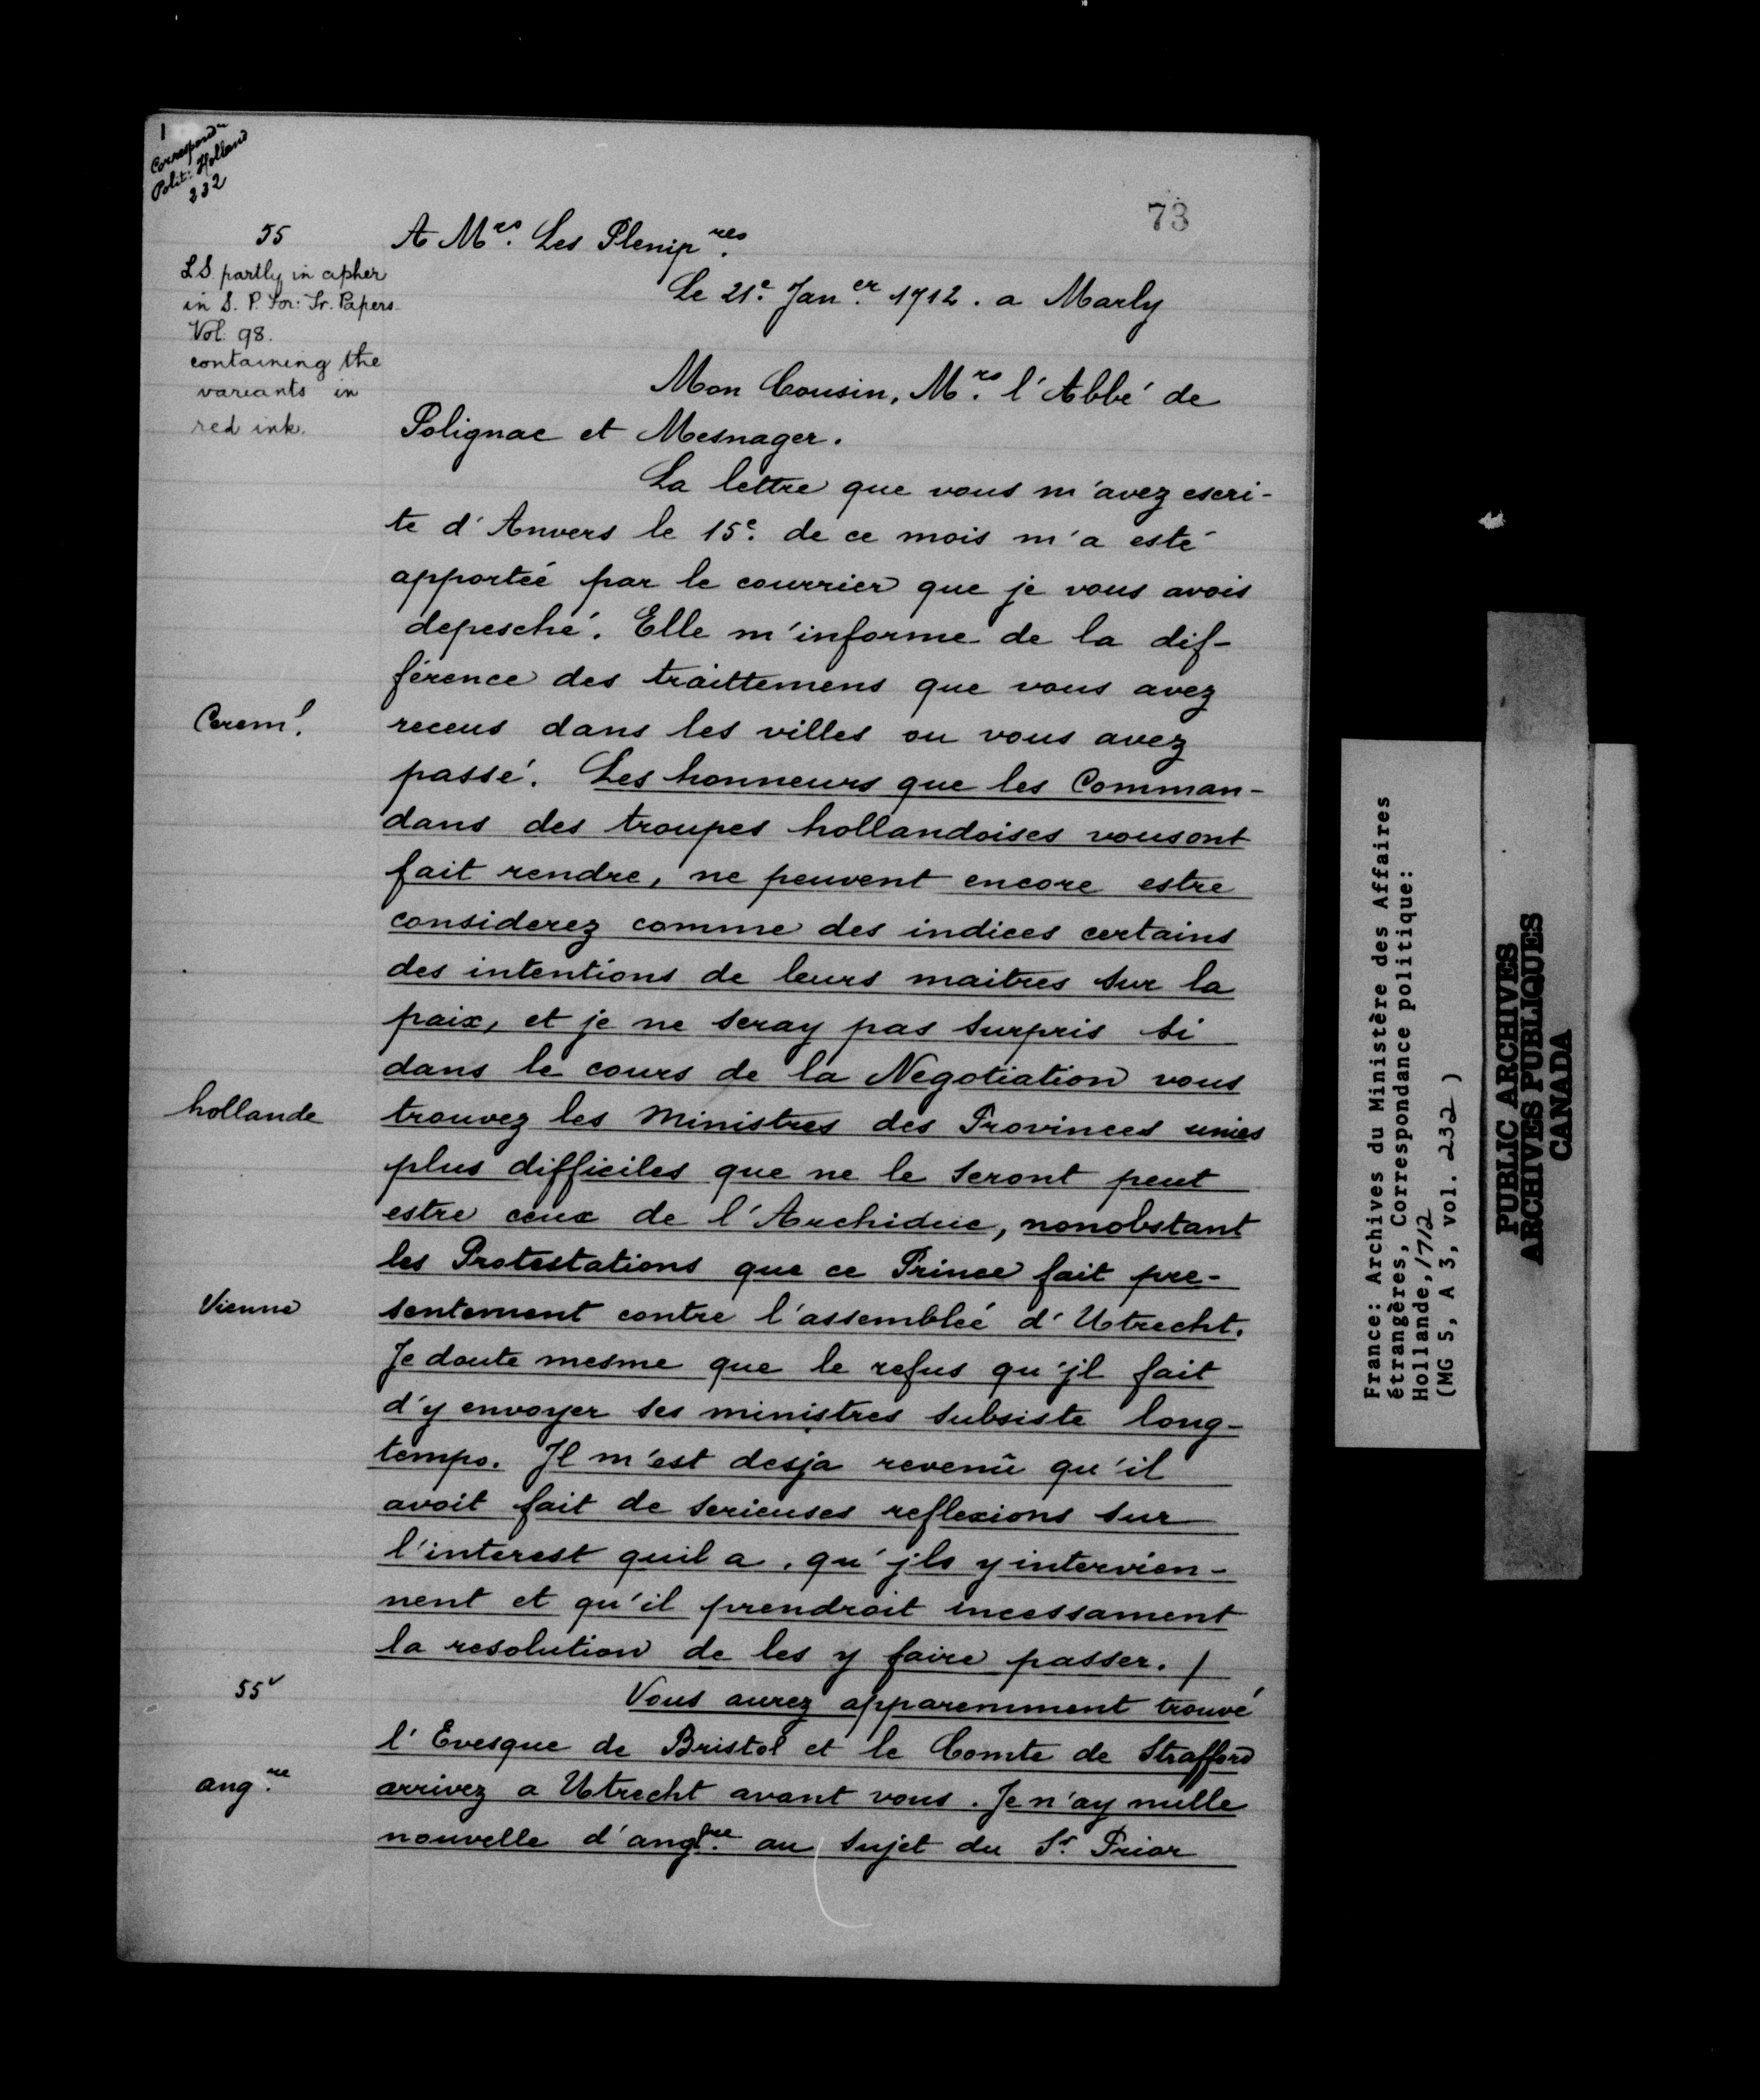 1
Correspond.ce
Polit: Holland
232
73
55
L.S. partly in cipher
in S. P. For: Fr. Papers
Vol: 98.
containing the
variants in
red ink.
A Mrs. Les Plenipres.
Le 21e. Janer. 1712. a Marly
Mon Cousin, Mrs. l'Abbé de
Polignac et Mesnager.
La lettre que vous m'avez escri-
te d'Anvers le 15e. de ce mois m'a esté
apporteé par le courrier que je vous avois
depesché. Elle m'informe de la dif-
férence des traittemens que vous avez
Cereml.
receus dans les villes ou vous avez
passé. Les honneurs que les Comman-
dans des troupes hollandoises vousont
fait rendre, ne peuvent encore estre
considerez comme des indices certains
des intentions de leurs maitres sur la
paix, et je ne seray pas surpris si
dans le cours de la Negotiation vous
hollande
trouvez les Ministres des Provinces unies
plus difficiles que ne le seront peut
estre ceux de l'Archiduc, nonobstant
les Protestations que ce Prince fait pre-
Vienne
sentement contre l'assembleé d'Utrecht.
Je doute mesme que le refus qu'jl fait
d'y envoyer ses ministres subsiste long-
temps. Jl m'est desja revenû qu'il
avoit fait de serieuses reflexions sur
l'interest quil a, qu'jls y intervien-
nent et qu'il prendroit incessament
la resolution de les y faire passer. /
55v
Vous aurez apparemment trouvé
l'Evesque de Bristol et le Comte de Strafford
angre.
arrivez a Utrecht avant vous. Je n'ay nulle
nouvelle d'anglre. au sujet du Sr. Prior
France: Archives du Ministère des Affaires
étrangères, Correspondance politique:
Hollande, 1712
(MG 5, A 3, vol. 232 )
PUBLIC ARCHIVES
ARCHIVES PUBLIQUES
CANADA